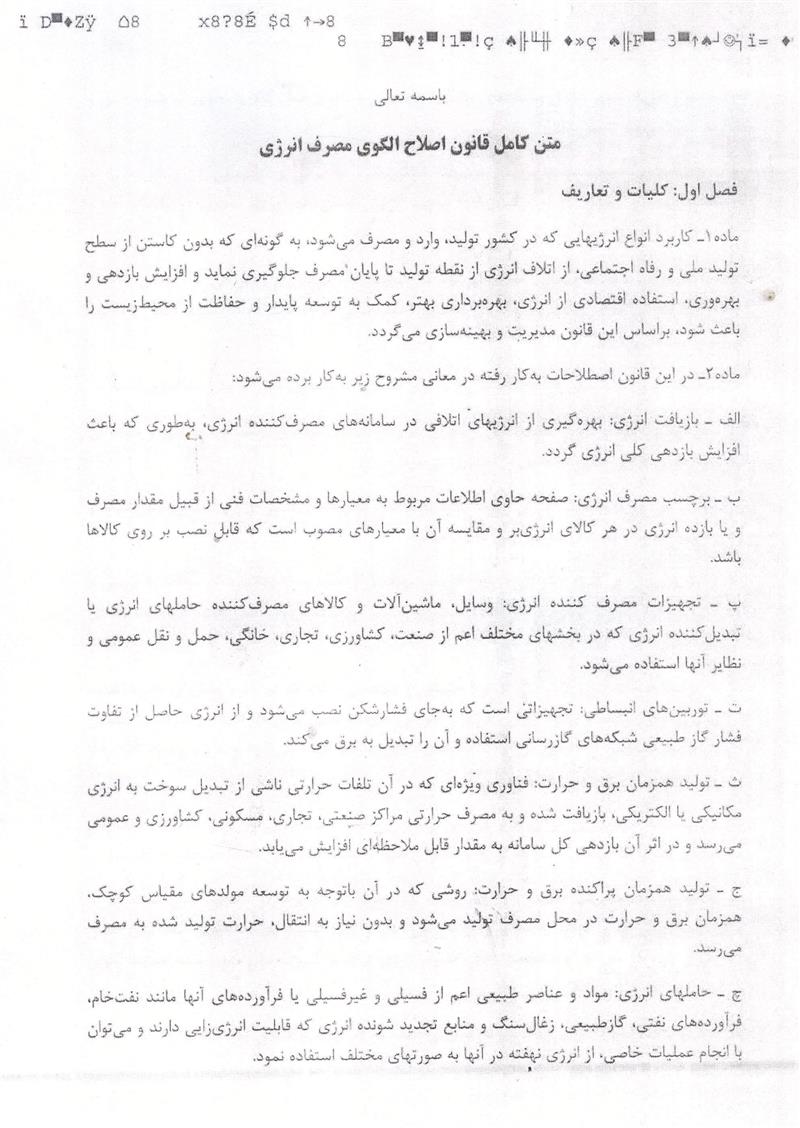 ï D▀♦Zÿ ⌂8 x8?8É $d ↑→8
8 B▀♥↨▀!1▀!ç ♠╟╙╫ ♦»ç ♠╟F▀ 3▀↑♠┘☺┐ï= ♦
باسمه تعالی
متن کامل قانون اصلاح الگوی مصرف انرژی
فصل اول: کلیات و تعاریف
ماده۱ـ کاربرد انواع انرژیهایی که در کشور تولید، وارد و مصرف می‌شود، به گونه‌ای که بدون کاستن از سطح
تولید ملی و رفاه اجتماعی، از اتلاف انرژی از نقطه تولید تا پایان مصرف جلوگیری نماید و افزایش بازدهی و
بهره‌وری، استفاده اقتصادی از انرژی، بهره‌برداری بهتر، کمک به توسعه پایدار و حفاظت از محیط‌زیست را
باعث شود، براساس این قانون مدیریت و بهینه‌سازی می‌گردد.
ماده۲ـ در این قانون اصطلاحات به‌کار رفته در معانی مشروح زیر به‌کار برده می‌شود:
الف ـ بازیافت انرژی: بهره‌گیری از انرژیهای اتلافی در سامانه‌های مصرف‌کننده انرژی، به‌طوری که باعث
افزایش بازدهی کلی انرژی گردد.
ب ـ برچسب مصرف انرژی: صفحه حاوی اطلاعات مربوط به معیارها و مشخصات فنی از قبیل مقدار مصرف
و یا بازده انرژی در هر کالای انرژی‌بر و مقایسه آن با معیارهای مصوب است که قابل نصب بر روی کالاها
باشد.
پ ـ تجهیزات مصرف کننده انرژی: وسایل، ماشین‌آلات و کالاهای مصرف‌کننده حاملهای انرژی یا
تبدیل‌کننده انرژی که در بخشهای مختلف اعم از صنعت، کشاورزی، تجاری، خانگی، حمل و نقل عمومی و
نظایر آنها استفاده می‌شود.
ت ـ توربین‌های انبساطی: تجهیزاتی است که به‌جای فشارشکن نصب می‌شود و از انرژی حاصل از تفاوت
فشار گاز طبیعی شبکه‌های گازرسانی استفاده و آن را تبدیل به برق می‌کند.
ث ـ تولید همزمان برق و حرارت: فناوری ویژه‌ای که در آن تلفات حرارتی ناشی از تبدیل سوخت به انرژی
مکانیکی یا الکتریکی، بازیافت شده و به مصرف حرارتی مراکز صنعتی، تجاری، مسکونی، کشاورزی و عمومی
می‌رسد و در اثر آن بازدهی کل سامانه به مقدار قابل ملاحظه‌ای افزایش می‌یابد.
ج ـ تولید همزمان پراکنده برق و حرارت: روشی که در آن باتوجه به توسعه مولدهای مقیاس کوچک،
همزمان برق و حرارت در محل مصرف تولید می‌شود و بدون نیاز به انتقال، حرارت تولید شده به مصرف
می‌رسد.
چ ـ حاملهای انرژی: مواد و عناصر طبیعی اعم از فسیلی و غیرفسیلی یا فرآورده‌های آنها مانند نفت‌خام،
فرآورده‌های نفتی، گازطبیعی، زغال‌سنگ و منابع تجدید شونده انرژی که قابلیت انرژی‌زایی دارند و می‌توان
با انجام عملیات خاصی، از انرژی نهفته در آنها به صورتهای مختلف استفاده نمود.